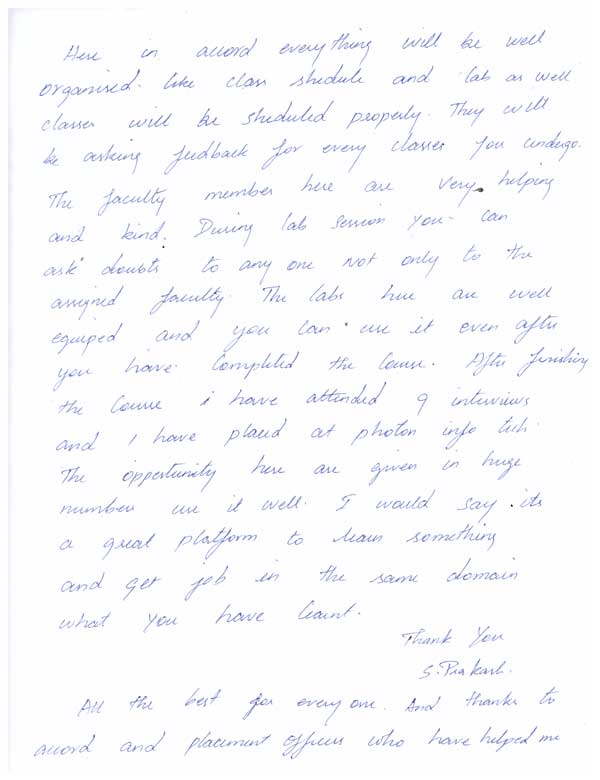 Here in accord everything will be well
organised. like class shedule and lab as well
classes will be sheduled properly. They will
be asking fedback for every classes you undugo.
The faculty member here are very helping
and kind. During lab session you can
ask doubts to any one not only to the
assigned faculty. The labs here are well
equiped and you can use it even after
you have completed the course. After finishing
the course i have attended 9 interviews
and I have placed at photon info tech.
The opportunity here are given in huge
numbers use it well. I would say its
a great platform to learn something
and get job in the same domain
what you have learnt.
Thank You
S. Prakash.
All the best for every one. And thanks to
accord and placement officers who have helped me